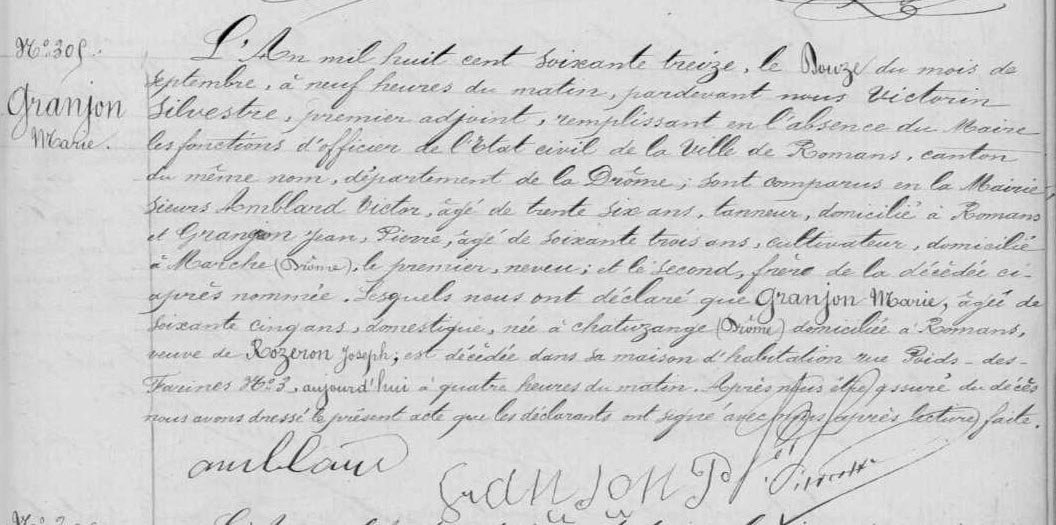 N.º 305.
Granjon
Marie.
L'An mil huit cent soixante treize, le Douze du mois de
septembre, à neuf heures du matin, pardevant nous Victorin
Silvestre, premier adjoint, remplissant en l'absence du Maire
les fonctions d'officier de l'Etat civil de la Ville de Romans, canton
du même nom, département de la Drôme; sont comparus en la Mairie
sieurs Amblard Victor, âgé de trente six ans, tanneur, domicilié à Romans
et Granjon Jean, Pierre, âgé de soixante trois ans, cultivateur, domicilié
à Marche (Drôme), le premier, neveu; et le second, frère de la décédée ci-
après nommée. Lesquels nous ont déclaré que Granjon Marie, âgée de
soixante cinq ans, domestique, née à chatuzange (Drôme) domiciliée à Romans,
veuve de Rozeron Joseph; est décédée dans sa maison d'habitation rue Poids-des-
Farines N.º 3, aujourd'hui à quatre heures du matin. Après nous être assuré du décès
nous avons dressé le présent acte que les déclarants ont signé avec nous après lecture faite.
amblard
GrANJON P